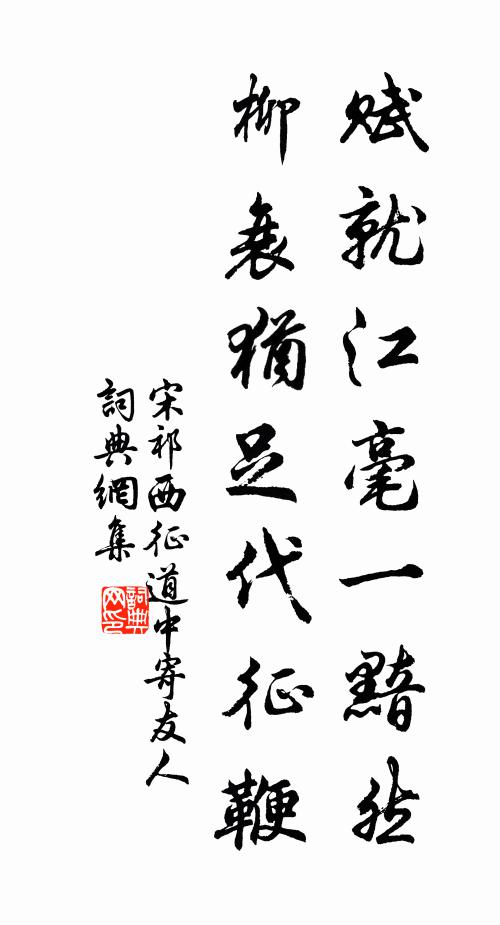 賦就江毫一黯然
柳衰猶足代征鞭
宋祁西征道中寄友人
詞典網集
詞典网印